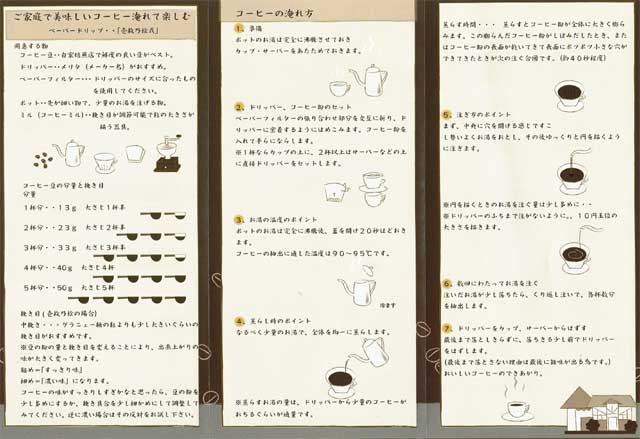 ご家庭で美味しいコーヒー淹れて楽しむ
ペーパードリップ・・「壱政乃拉式」
用意する物
コーヒー豆・・自家焙煎店で鮮度の良い豆がベスト。
ドリッパー・メリタ(メーカー名)がおすすめ。
ペーパーフィルター・・・ドリッパーのサイズに合ったもの
を使用してください。
ポット・先が細い物で、少量のお湯を注げる物。
ミル(コーヒーミル)・・挽き目が調節可能で粒の大きさが
揃う器具。
コーヒー豆の分量と挽き目
分量
1杯分・・13g 大さじ1杯半
2杯分・・23g 大さじ2杯半
3杯分・・33g 大さじ3杯半
4杯分・・40g 大さじ4杯
5杯分・・50g 大さじ5杯
挽き目(壱政乃拉の場合)
中挽き・・・グラニュー糖の粒よりも少し大きいくらいの
挽き目がおすすめです。
※豆の粉の量と挽き目を変えることにより、出来上がりの
味が大きく変ってきます。
粗め=「すっきり味」
細め=「濃い味」になります。
コーヒーの味がすっきりしすぎかなと思ったら、豆の粉を
少し多めにするか、挽き具合を少し細かめにして調整して
みてください。逆に濃い場合はその反対をお試し下さい。
コーヒーの淹れ方
1、準備
ポットのお湯は完全に沸騰させておき
カップ・サーバーをあたためておきます。
2、ドリッパー、コーヒー粉のセット
ペーパーフィルターの張り合わせ部分を交互に折り、ド
リッパーに密着するようにはめこみます。コーヒー粉を
入れて平らにならします。
※1杯ならカップの上に、2杯以上はサーバーなどの上
に直接ドリッパーをセットします。
3、お湯の温度のポイント
ポットのお湯は完全に沸騰後、蓋を開け20秒ほどおき
ます。
コーヒーの抽出に適した温度は90~95℃です。
冷ます
4、蒸らし時のポイント
なるべく少量のお湯で、全体を均一に蒸らします。
※蒸らすお湯の量は、ドリッパーから少量のコーヒーが
おちるぐらいが適量です。
蒸らす時間・・・ 蒸らすとコーヒー粉が全体に大きく膨ら
みます。この膨らんだコーヒー粉がしぼみだしたとき、また
はコーヒー粉の表面が乾いてきて表面にポツポツ小さな穴が
できてきたときが次の注ぐ合図です。(約40秒程度)
5、注ぎ方のポイント
まず、中央に穴を開ける感じですこ
し勢いよくお湯をおとし、その後ゆっくりと円を描くよう
に注ぎます。
※円を描くときのお湯を注ぐ量は少し多めに・・
※ドリッパーのふちまで注がないように。、10円玉位の
大きさを描きます。
6、数回にわたってお湯を注ぐ
注いだお湯が少し落ちたら、くり返し注いで、各杯数分
を抽出します。
7、ドリッパーをカップ、サーバーからはずす
最後まで落としきらずに、落ちきる少し前でドリッパー
をはずします。
(最後まで落とさない理由は最後に雑味が出る為です。)
おいしいコーヒーのできあがり。